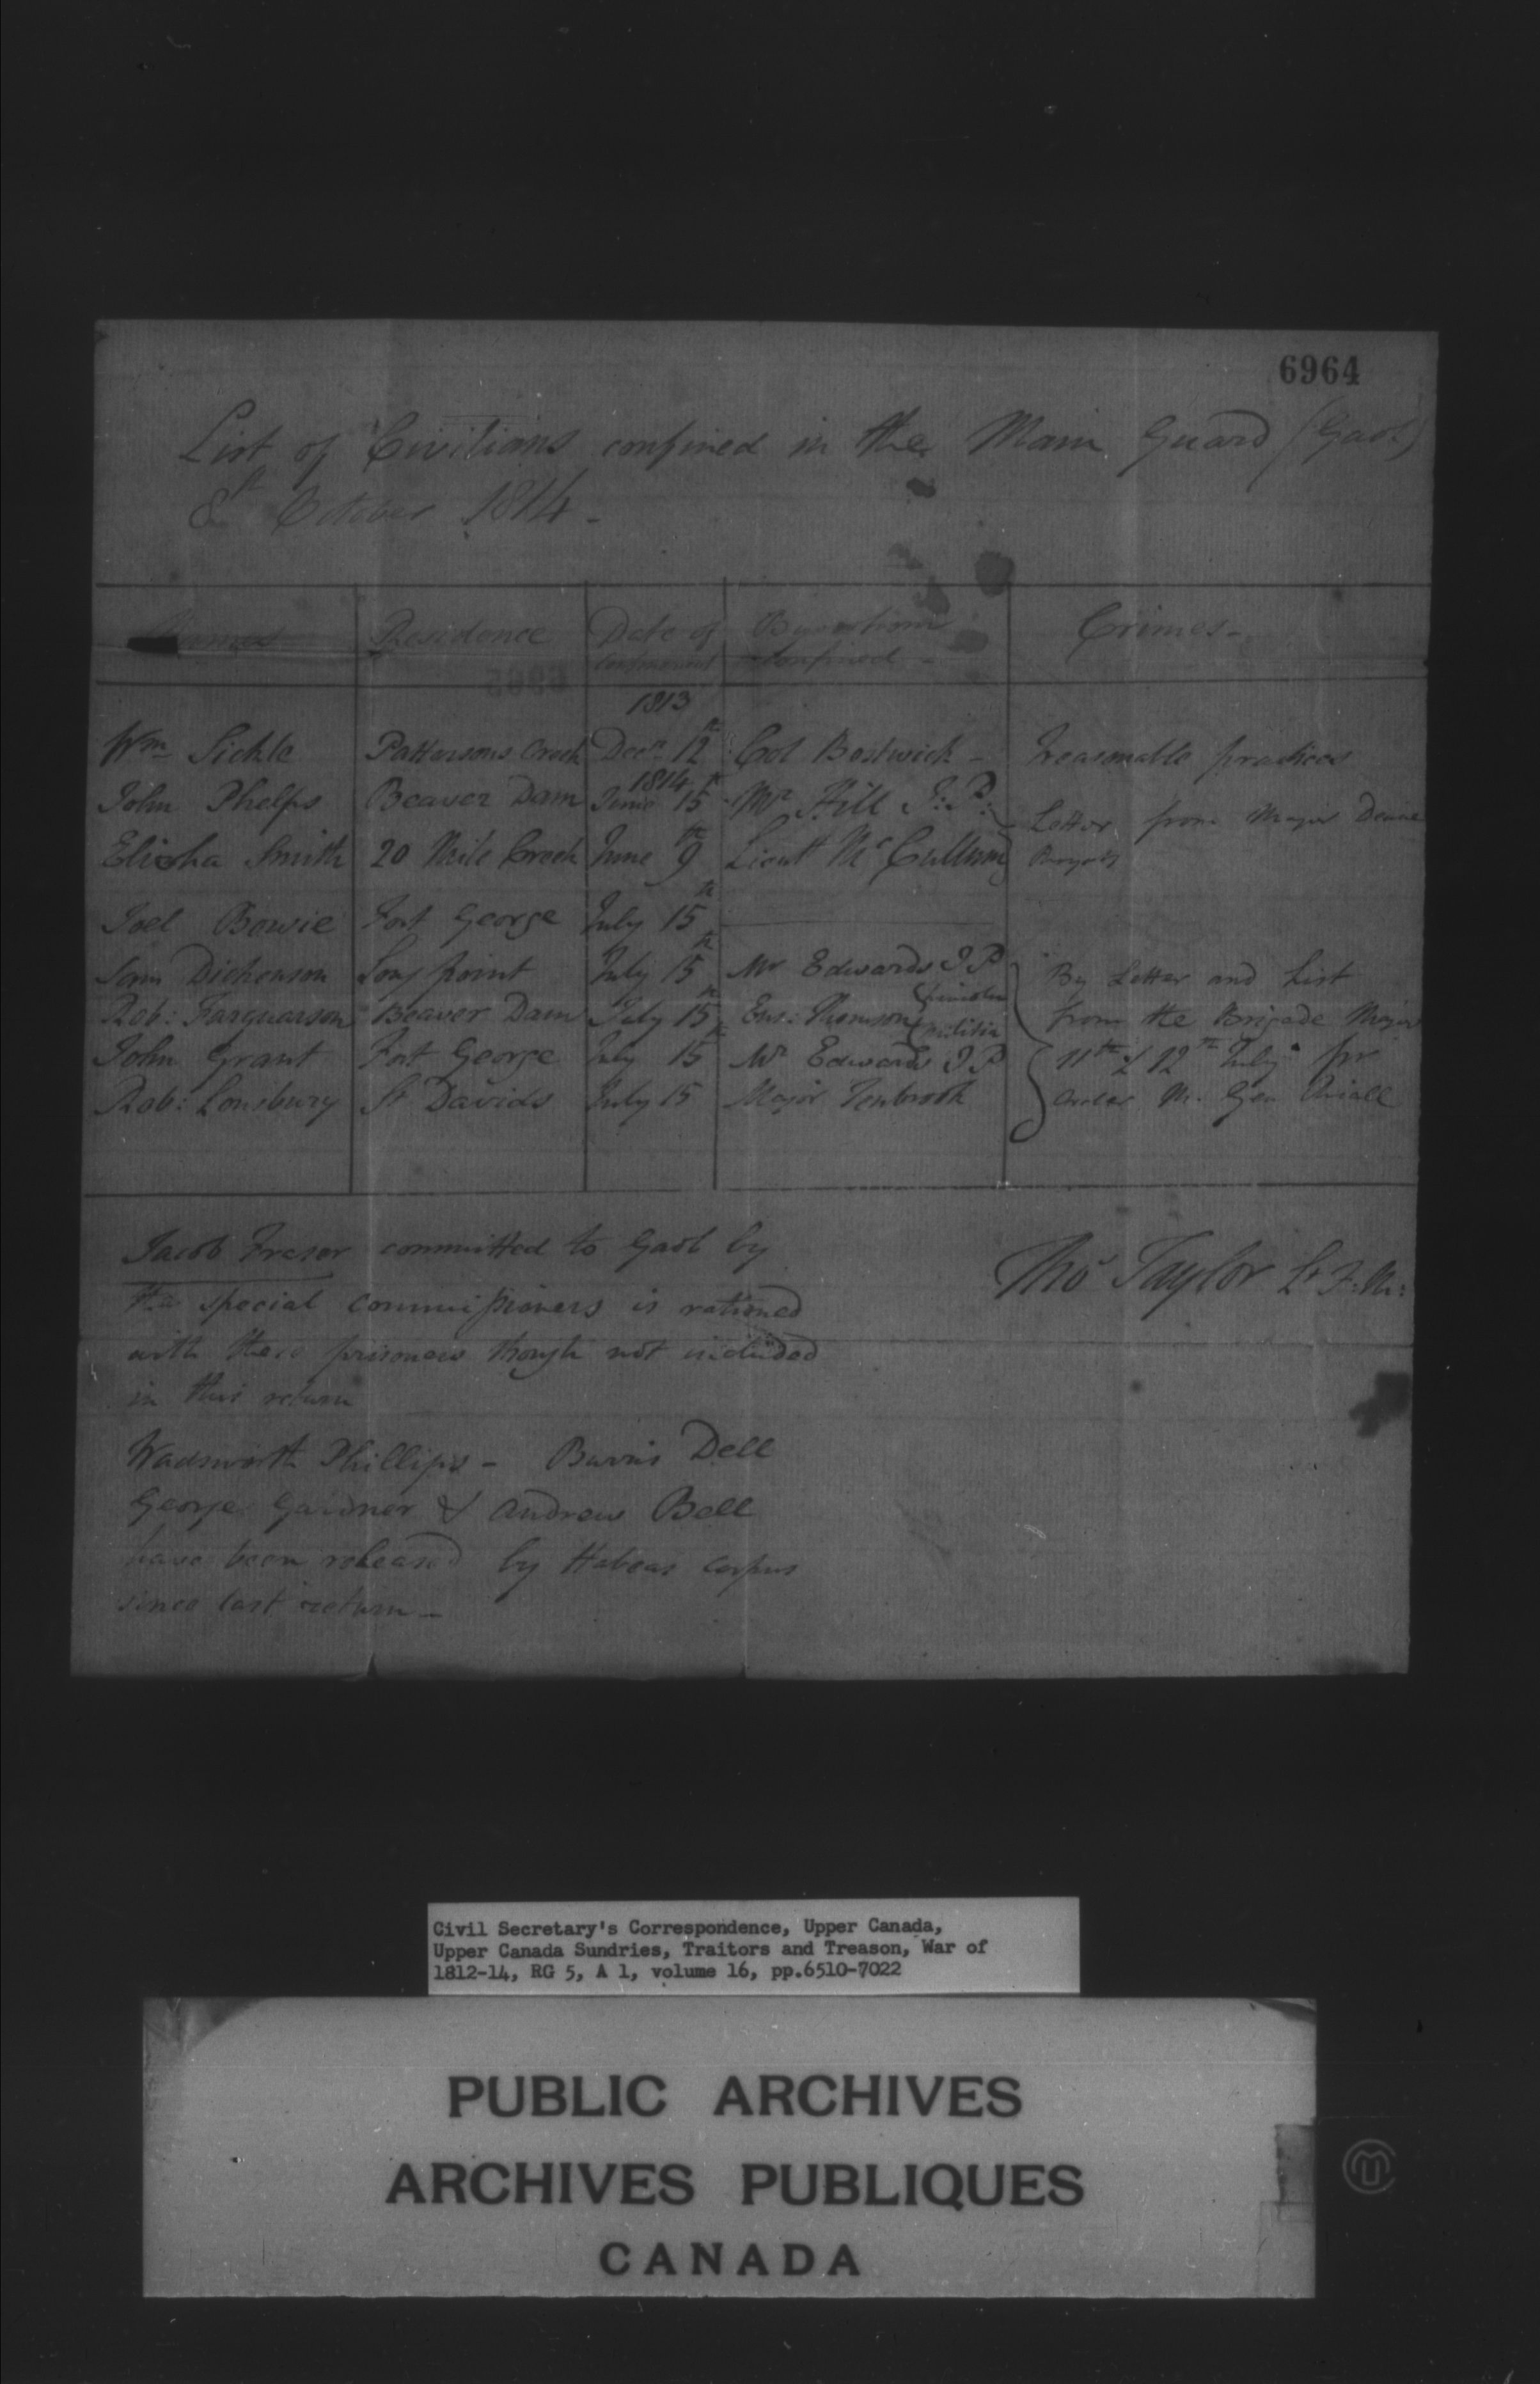 6964
List of Civilians confined in the Main Guard (Gaol)
8th October 1814 -
Names Residence Date of Confinement By whom Confined - Crimes -
1813
Wm Sickle Pattersons Creek Decr 12th Col Bostwick - Treasonable practices
1814
John Phelps Beaver Dam June 15th Mr Hill J: P: Letter from Major Deane
Elisha Smith 20 Mile Creek June 9th Lieut McCullum
Joel Bowie Fort George July 15th
Sam Dickenson Long point July 15th Mr Edwards J P By Letter and List
Rob: Farquarson Beaver Dam July 15th Ens: Thomson Lincoln militia from the Brigade Major
John Grant Fort George July 15th Mr Edwards J P 11th & 12th July pr
Rob: Lonsbury St Davids July 15 Major Tenbrook order M. Gen Riall
Jacob Fraser committed to Gaol by
the special commissioners is rationed
with these prisoners though not included
in this return
Thos Taylor Lt F: M:
Wadsworth Phillips - Burris Dell
George Gardner & Andrew Bell
have been released by Habeas Corpus
since last return -
Civil Secretary's Correspondence, Upper Canada,
Upper Canada Sundries, Traitors and Treason, War of
1812-14, RG 5, A 1, volume 16, pp.6510-7022
PUBLIC ARCHIVES
ARCHIVES PUBLIQUES
CANADA